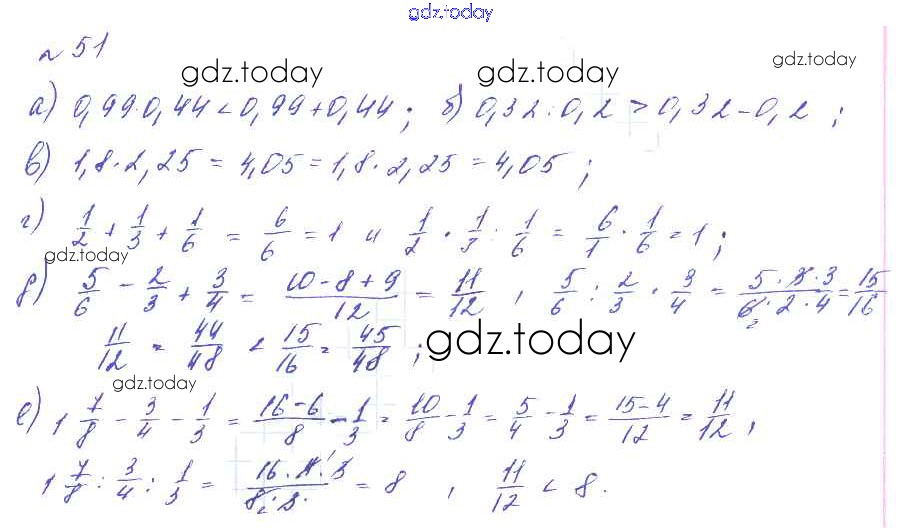 gdz.today
№ 51
gdz.today gdz.today gdz.today
а) 0,99·0,44 < 0,99+0,44 ; б) 0,32 : 0,2 > 0,32 - 0,2 ;
в) 1,8·2,25 = 4,05 = 1,8·2,25 = 4,05 ;
г) 1/2 + 1/3 + 1/6 = 6/6 = 1 и 1/2 · 1/3 : 1/6 = 6/1 · 1/6 = 1 ;
gdz.today
д) 5/6 - 2/3 + 3/4 = (10-8+9)/12 = 11/12 , 5/6 : 2/3 · 3/4 = (5·3·3)/(6₂·2·4) = 15/16
11/12 = 44/48 < 15/16 = 45/48 ; gdz.today
gdz.today
е) 1 7/8 - 3/4 - 1/3 = (16-6)/8 - 1/3 = 10/8 - 1/3 = 5/4 - 1/3 = (15-4)/12 = 11/12 ,
1 7/8 : 3/4 : 1/3 = = 8 , 11/12 < 8.